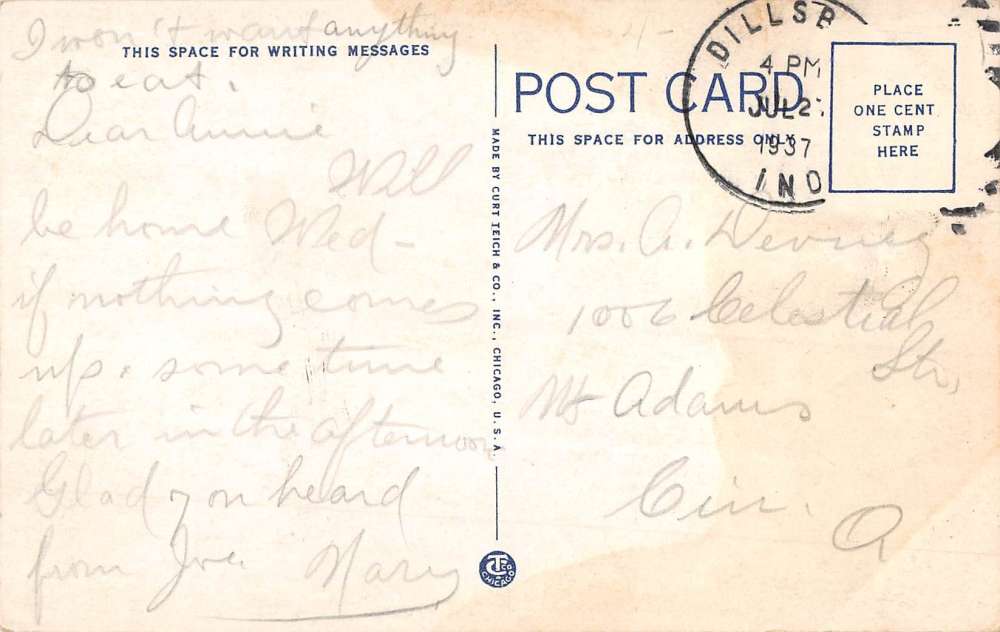 I won't want anything
THIS SPACE FOR WRITING MESSAGES
to eat.
Dear Annie
Will
be home Wed-
if nothing comes
up. some time
later in the afternoon
Glad you heard
from Joe Mary
MADE BY CURT TEICH & CO., INC., CHICAGO, U.S.A.
CT CO
CHICAGO
POST CARD
THIS SPACE FOR ADDRESS ONLY
DILLSB
4 PM
JUL 2
1937
IND
PLACE
ONE CENT
STAMP
HERE
Mrs. A. Devney
1006 Celestial
Str.
Mt Adams
Cin. O